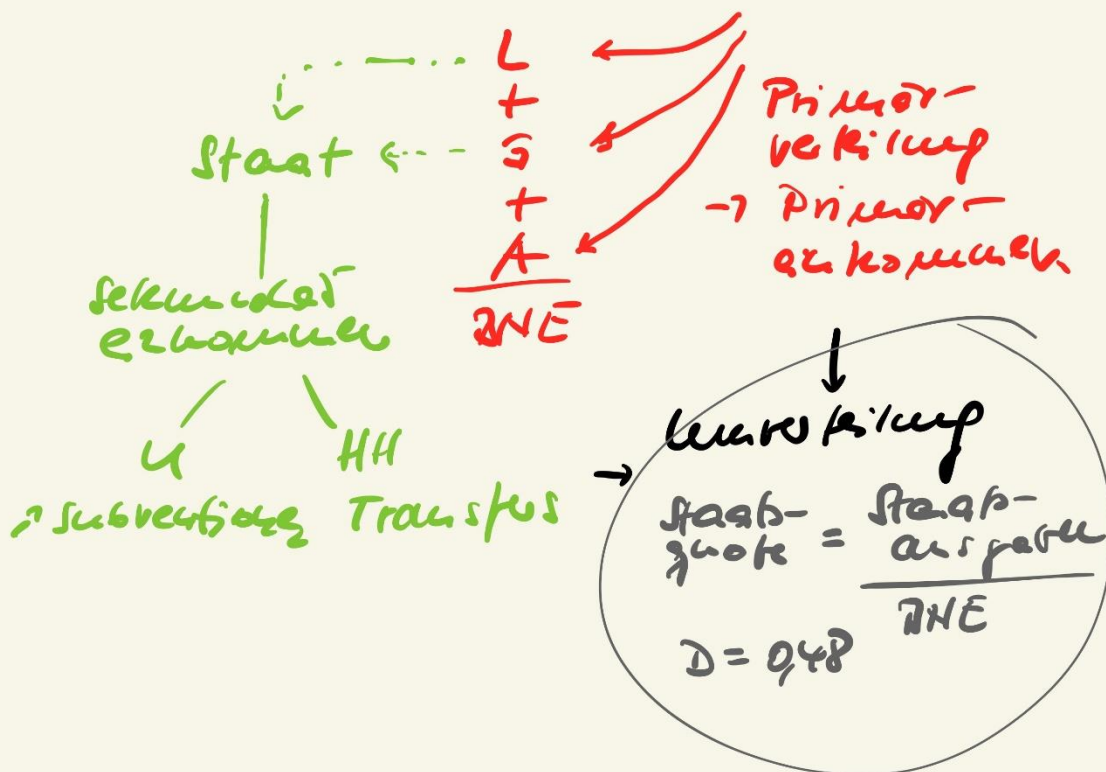 L
+
G
+
A
BNE
Primär-
verteilung
→ Primär-
einkommen
Staat
Sekundär
einkommen
U
HH
↗ Subventionen Transfers
→ Umverteilung
Staats-
quote = Staats-
ausgaben
BNE
D = 0,48